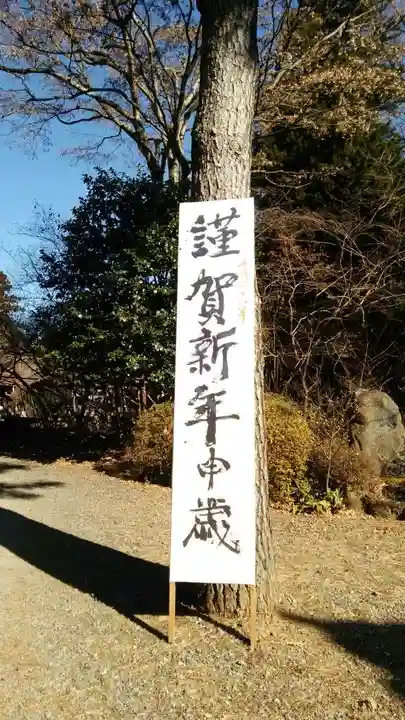 謹賀新年申歳